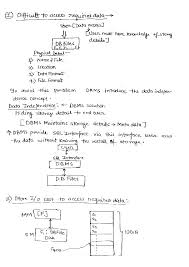 ② Difficult to access required data:→
User [Data needed]
[User must have knowledge of storage details]
DBMS
Physical Level
1) Name of File
2) Location
3) Data Format
4) File Format
To avoid this problem DBMS introduce the data independence concept.
Data Independence :- DBMS solution
Hiding storage detail to end user.
[DBMS Maintains storage details & meta data]
DBMS provide SQL Interface via this interface user can
the data without knowing the detail of storage.
User
SQL Interface
DBMS
DB Files
3) More I/O cost to access required data:
MM
100GB